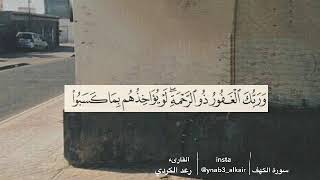 وَرَبُّكَ ٱلْغَفُورُ ذُو ٱلرَّحْمَةِ ۖ لَوْ يُؤَاخِذُهُم بِمَا كَسَبُوا۟
سورة الكهف | insta @ynab3_elkair | القارىء رعد الكردي